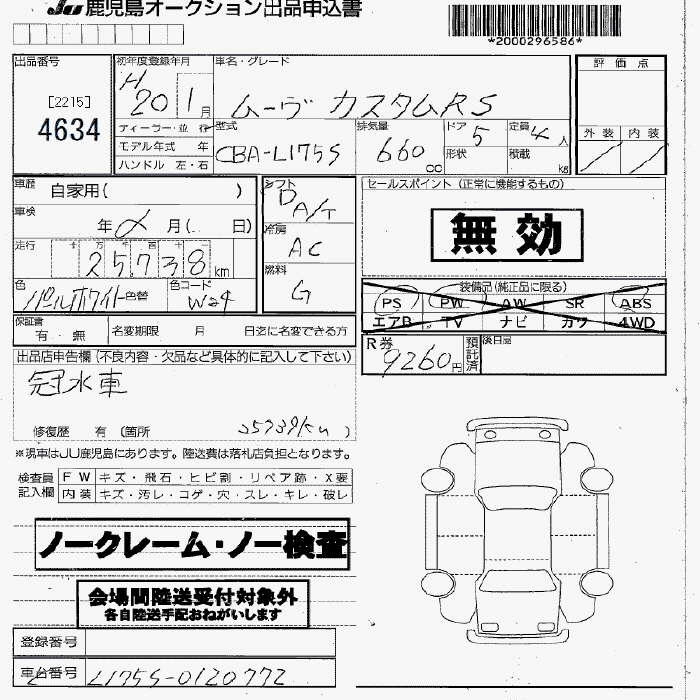 JU 鹿児島オークション出品申込書
*2000296586*
出品番号
[2215]
4634
初年度登録年月
H 20 1月
車名・グレード
ムーヴ カスタムRS
評価点
外装 内装
ディーラー・並行
モデル年式 年
ハンドル 左・右
型式
CBA-L175S
排気量
660cc
ドア 5
形状
定員 4人
積載 kg
車歴
自家用( )
車検
年 月( 日)
走行
十 万 千 百 十 一
25,738km
色
パールホワイト 色替
色コード
W24
シフト
D A/T
冷房
AC
燃料
G
セールスポイント (正常に機能するもの)
無効
装備品(純正品に限る)
PS PW AW SR ABS
エアB TV ナビ カワ 4WD
保証書
有・無
名変期限 月 日迄に名変できる方
R券
9260円
預託済
後日品
出品店申告欄(不良内容・欠品など具体的に記入して下さい)
冠水車
修復歴 有 (箇所 25739km )
※現車はJU鹿児島にあります。陸送費は落札店負担となります。
検査員記入欄
FW キズ・飛石・ヒビ割・リペア跡・X要
内装 キズ・汚レ・コゲ・穴・スレ・キレ・破レ
ノークレーム・ノー検査
会場間陸送受付対象外
各自陸送手配おねがいします
登録番号
車台番号
L175S-0120772